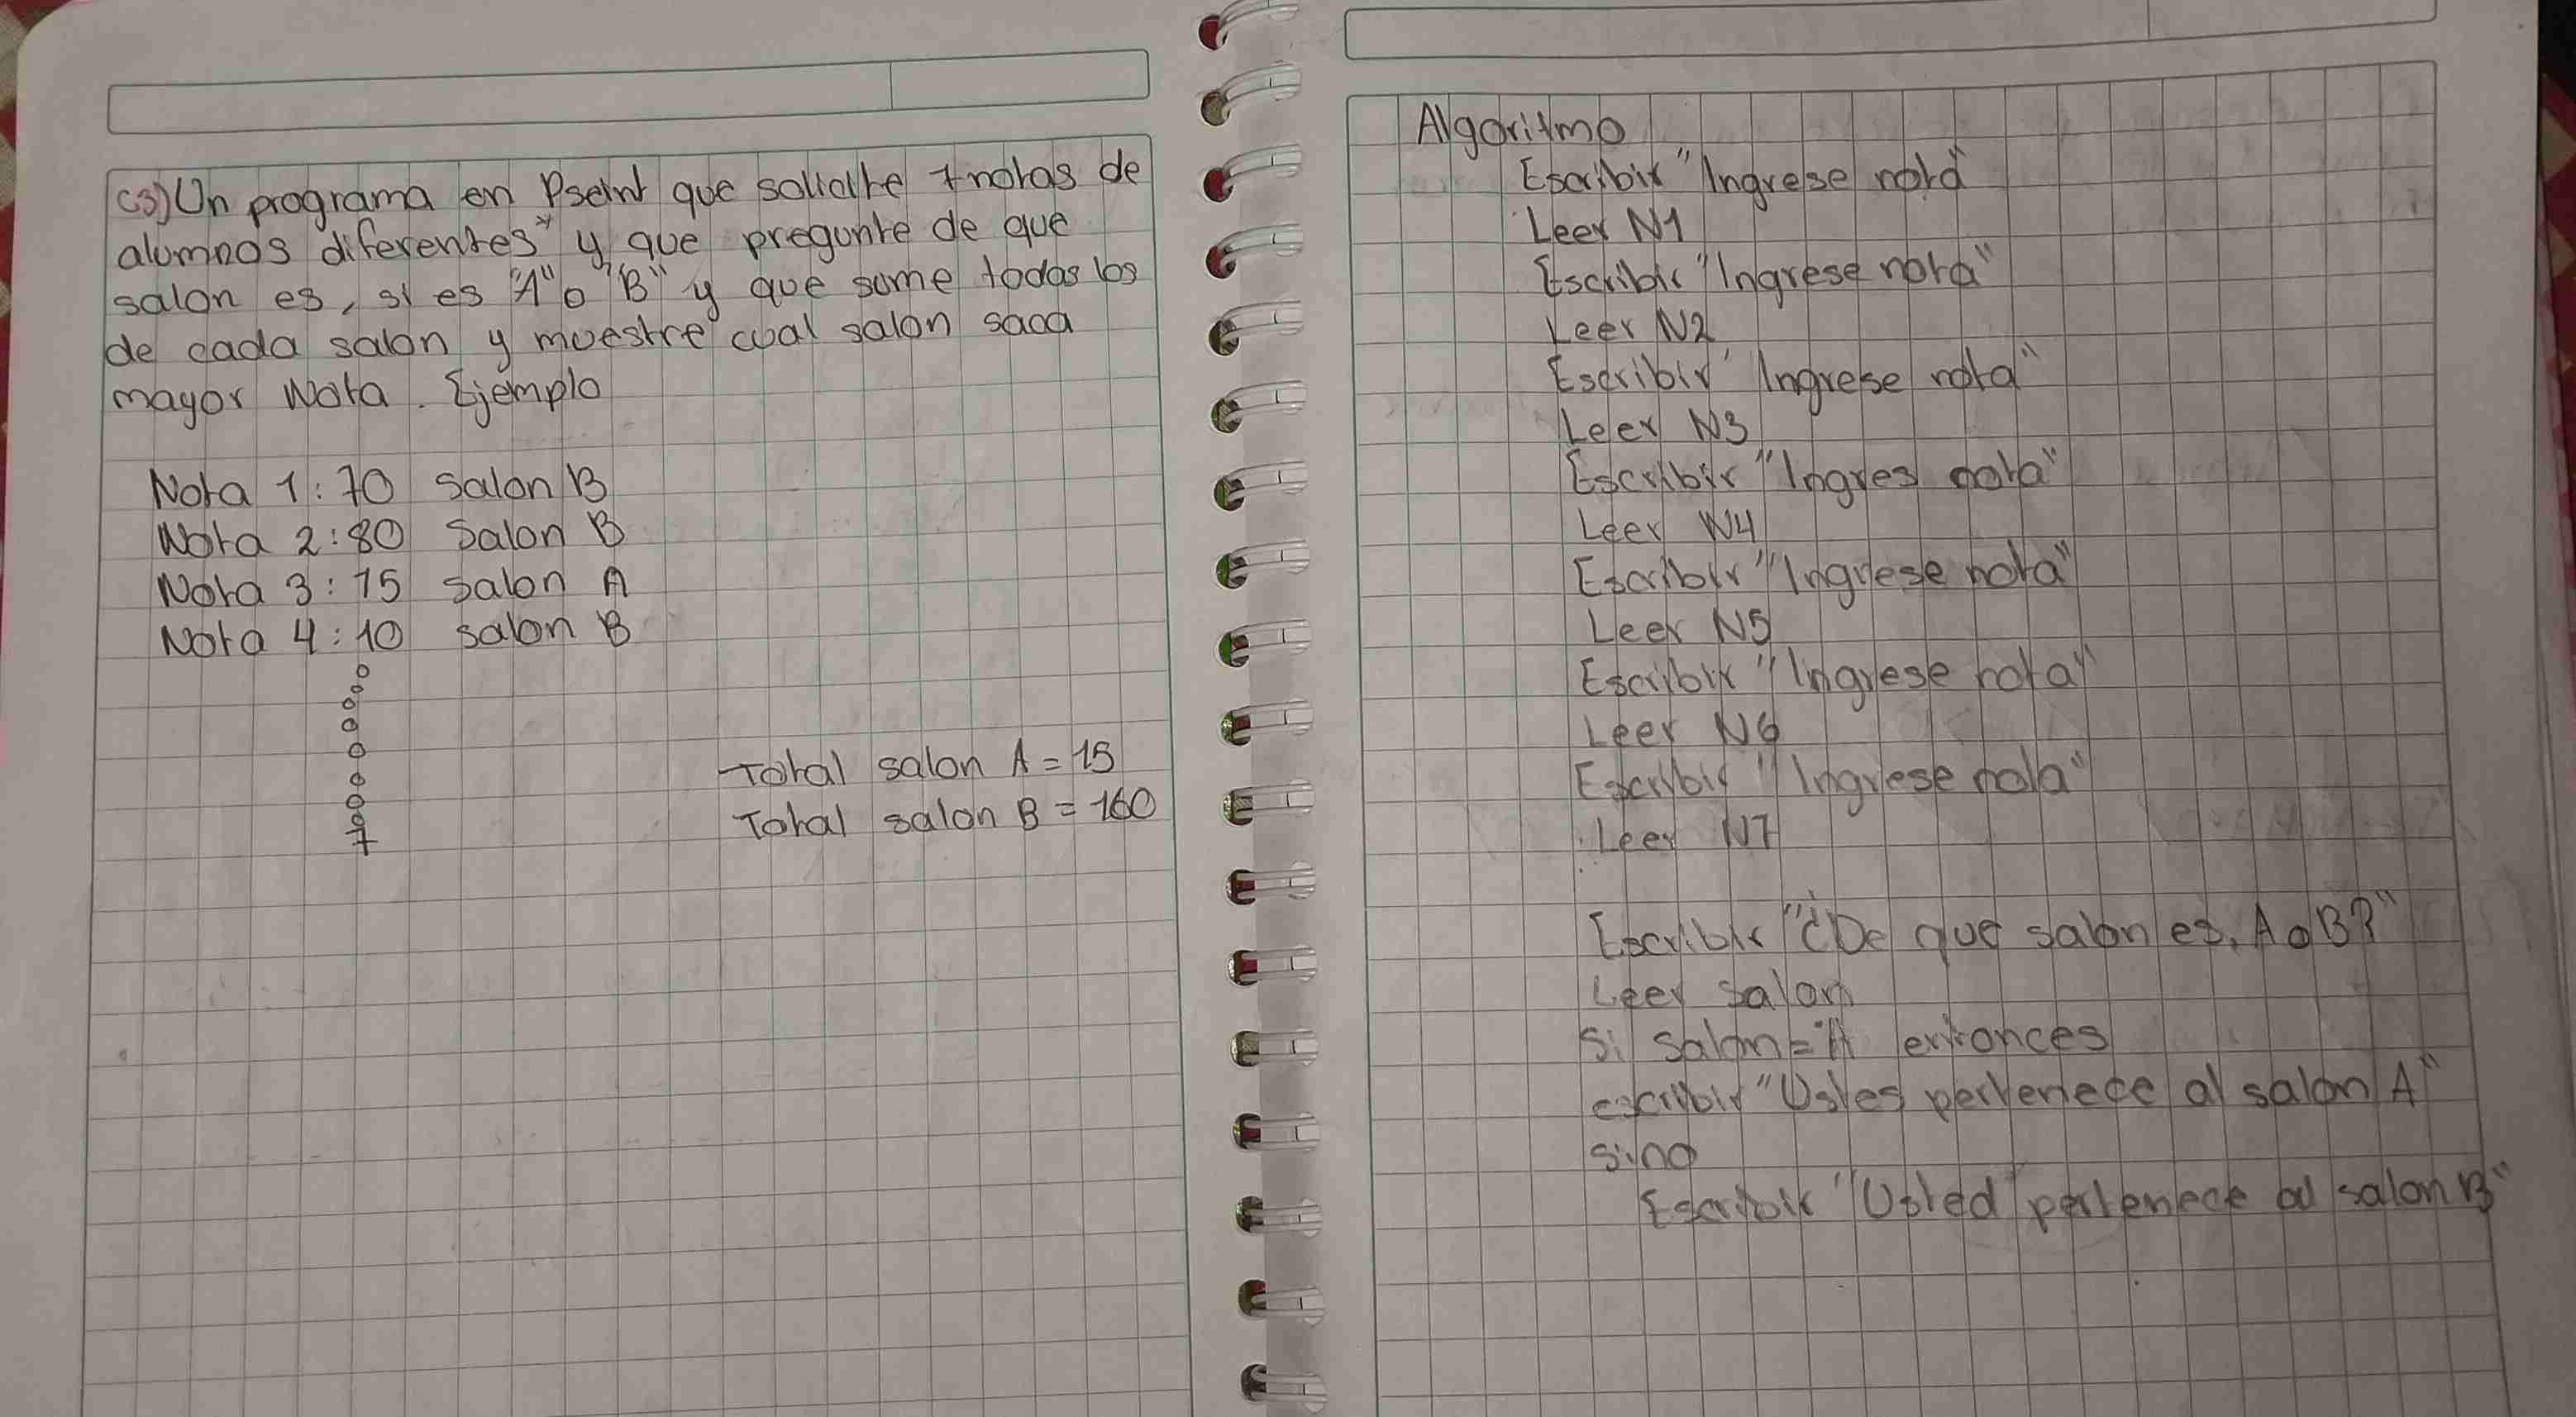 C3) Un programa en Pseint que solicite 7 notas de
alumnos diferentes y que pregunte de que
salon es, si es "A" o "B" y que sume todas los
de cada salon y muestre cual salon saca
mayor Nota. Ejemplo
Nota 1: 70 salon B
Nota 2: 80 Salon B
Nota 3: 15 salon A
Nota 4: 10 salon B
7
Total salon A = 15
Total salon B = 160
Algoritmo
Escribir "Ingrese nota"
Leer N1
Escribir "Ingrese nota"
Leer N2
Escribir "Ingrese nota"
Leer N3
Escribir "Ingres nota"
Leer N4
Escribir "Ingrese nota"
Leer N5
Escribir "Ingrese nota"
Leer N6
Escribir "Ingrese nota"
Leer N7
Escribir "¿De que salon es, A o B?"
Leer salon
Si salon = A entonces
escribir "Ustes pertenece al salon A"
sino
Escribir "Usted pertenece al salon B"